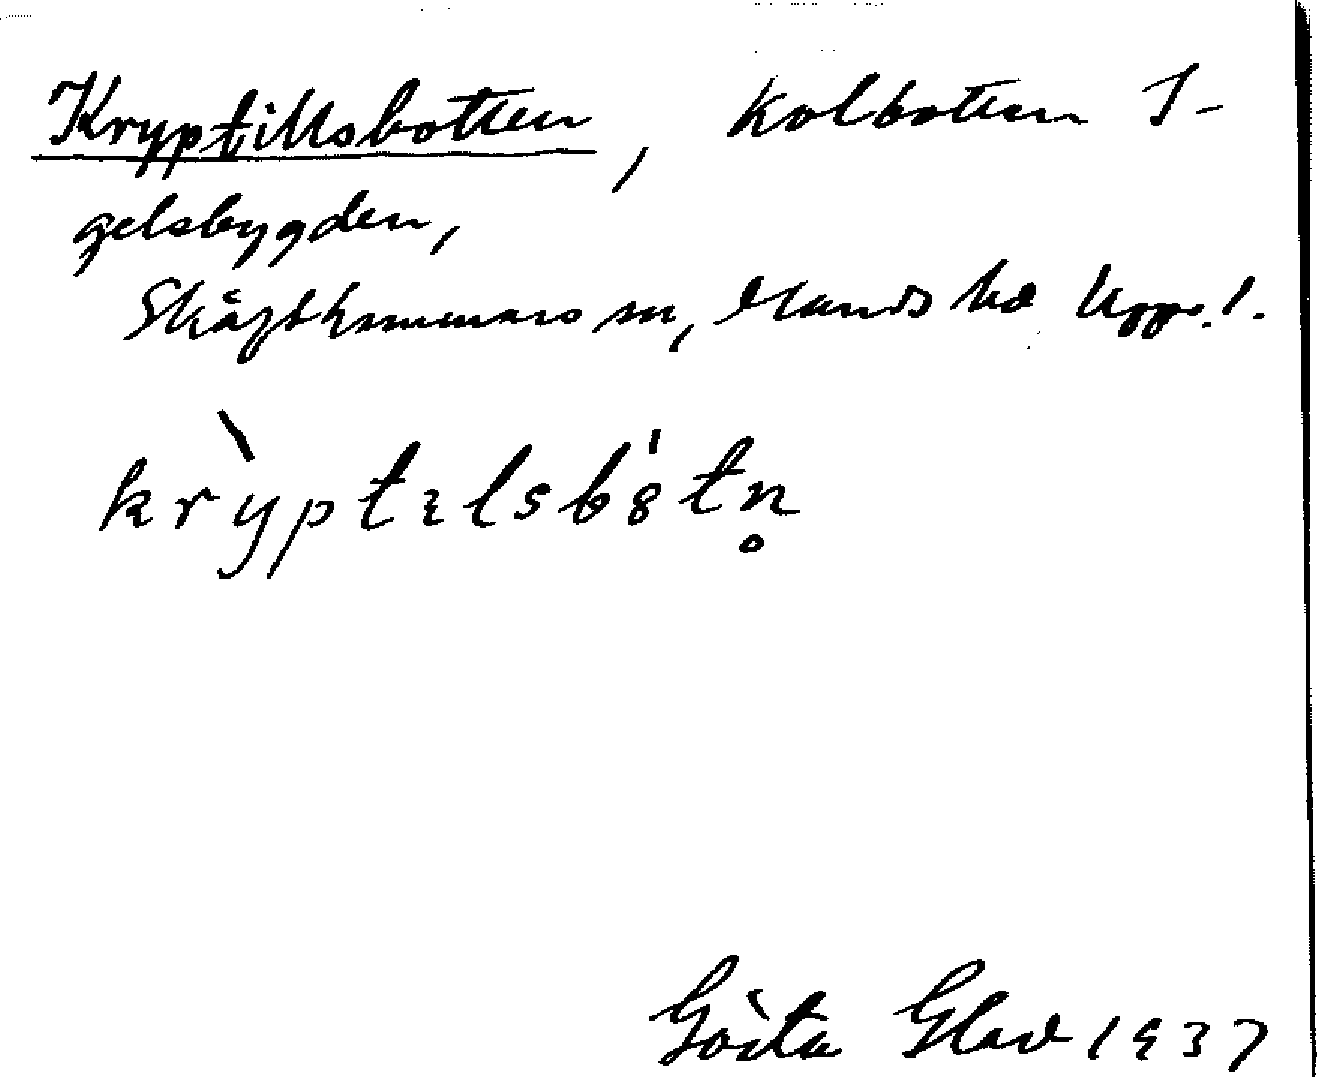 Kryptillsbotten, kolbotten I-
gelsbygden,
Skäfthammars sn, Olands hd Uppl.
krỳptılsbȣ́tn̥
Gösta Glad 1937